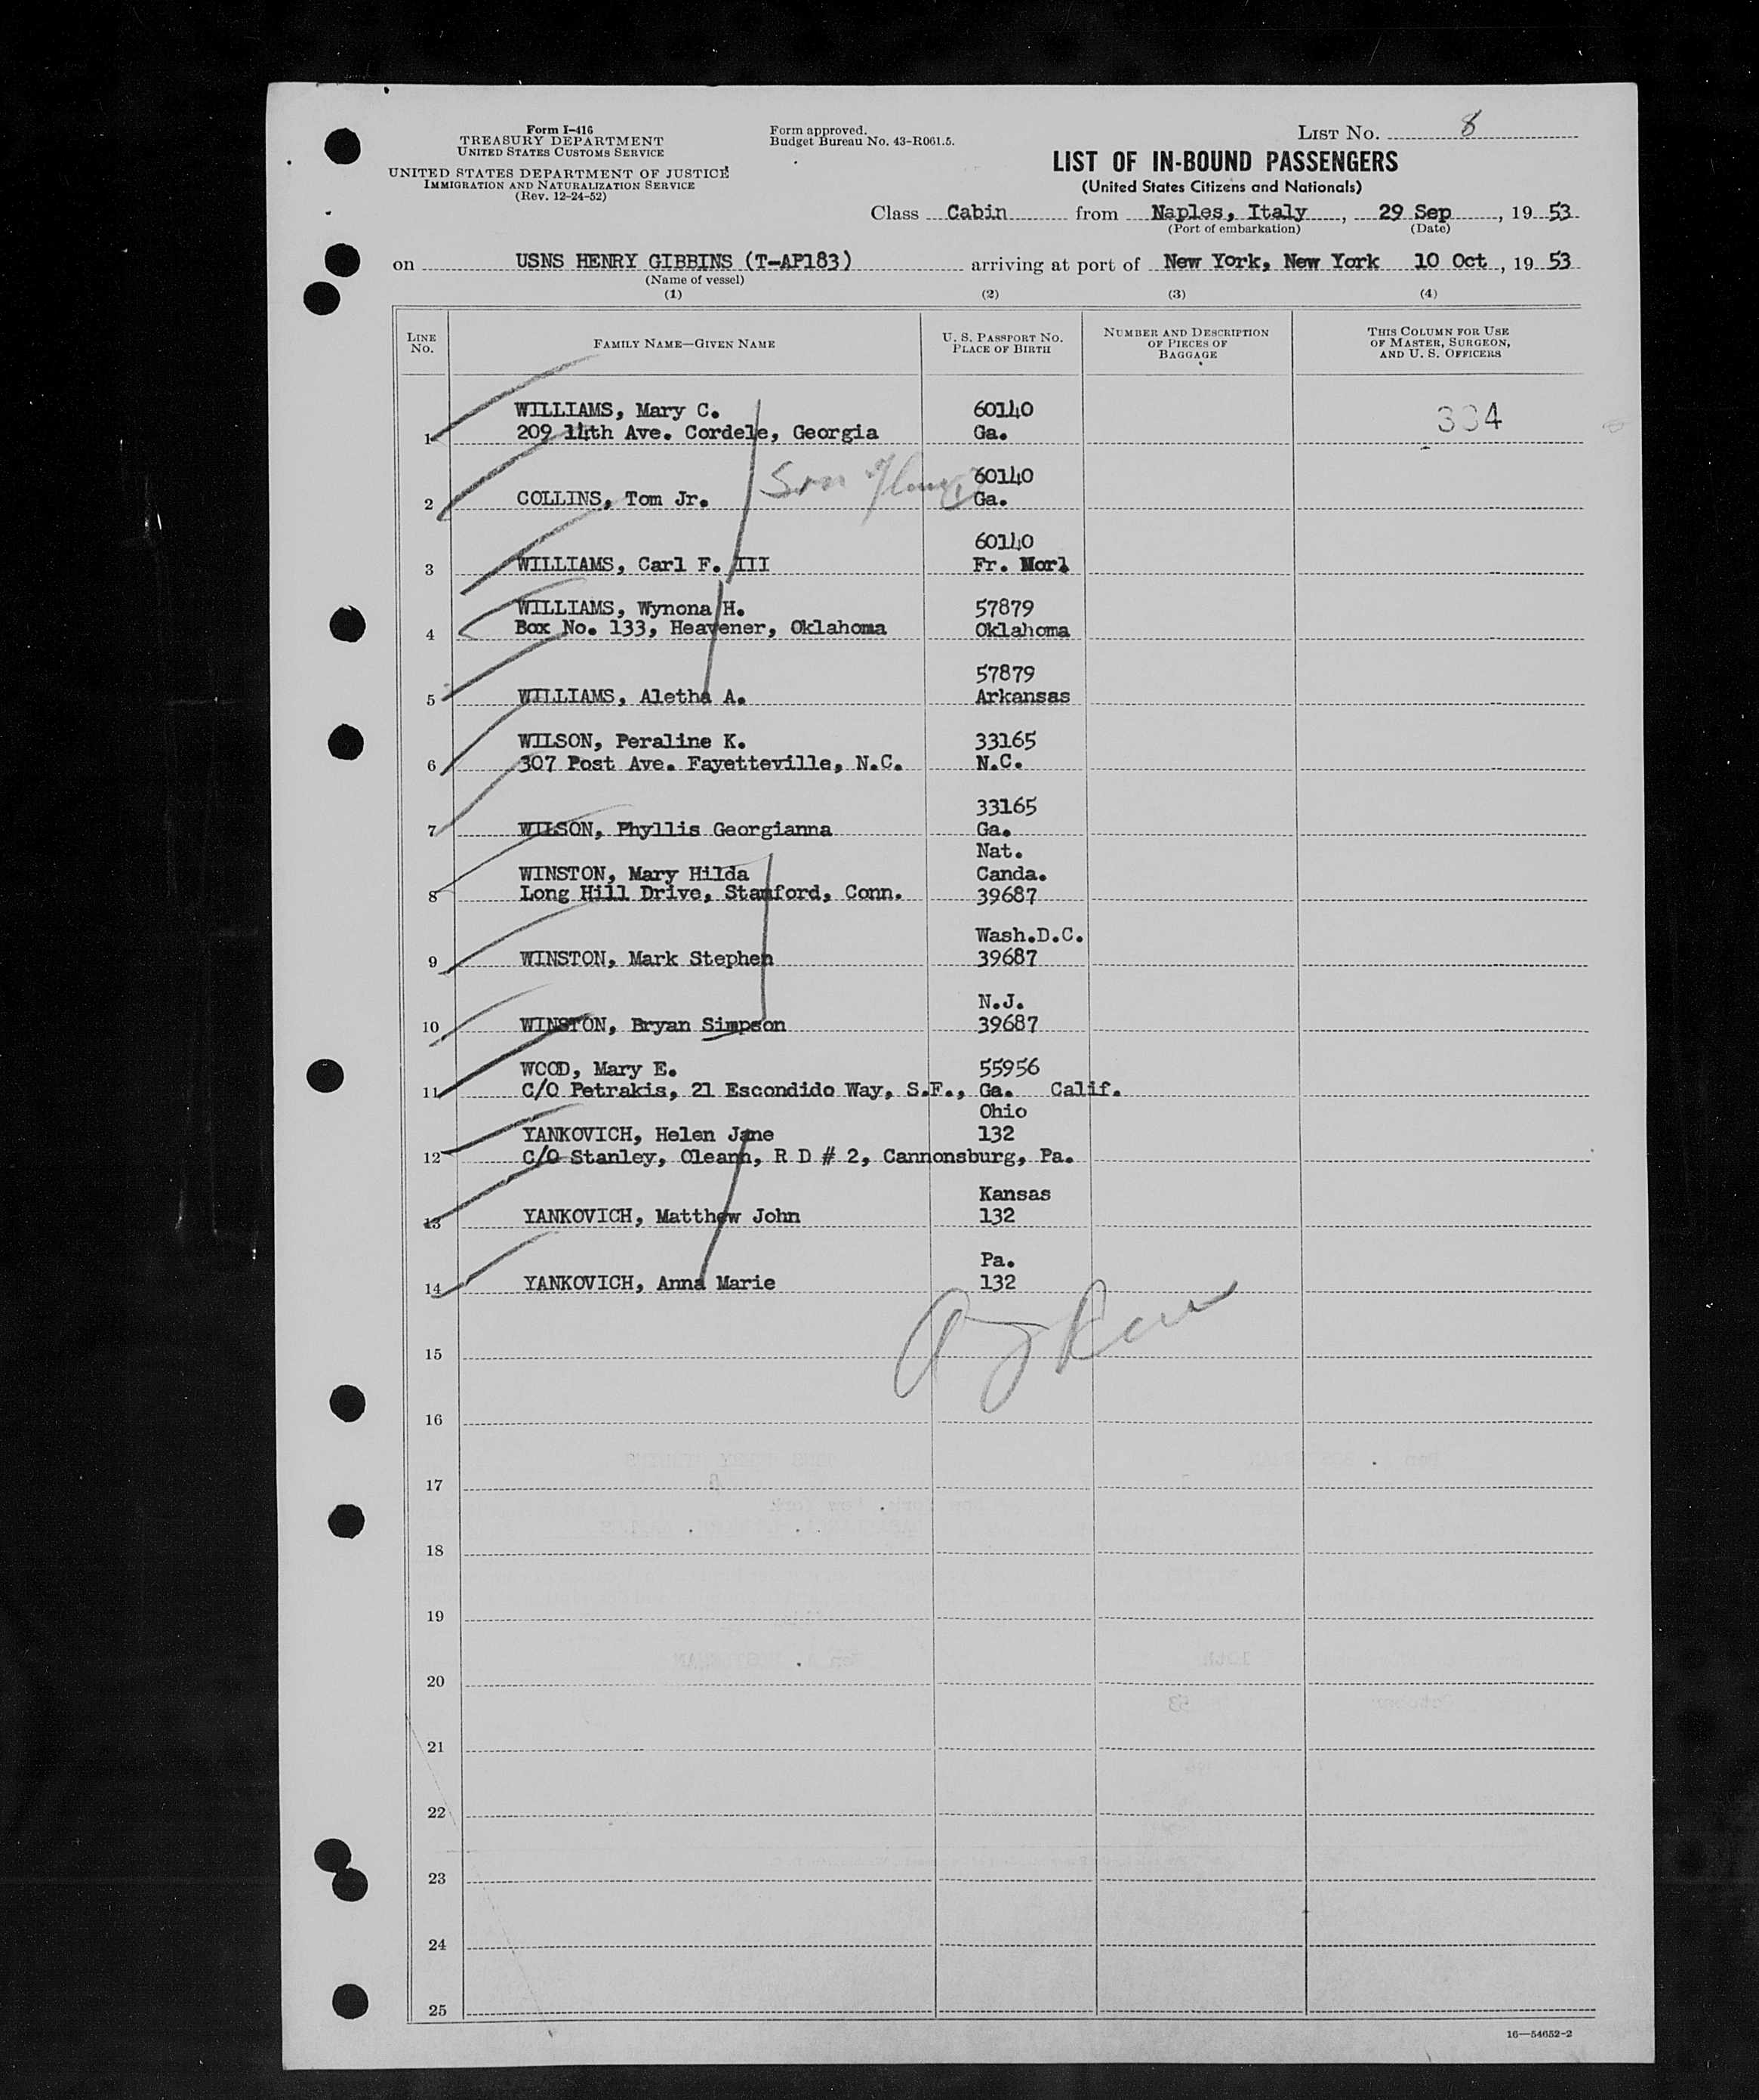 Form I-416
TREASURY DEPARTMENT
UNITED STATES CUSTOMS SERVICE
UNITED STATES DEPARTMENT OF JUSTICE
IMMIGRATION AND NATURALIZATION SERVICE
(Rev. 12-24-52)
Form approved.
Budget Bureau No. 43-R061.5.
LIST NO. 8
LIST OF IN-BOUND PASSENGERS
(United States Citizens and Nationals)
Class Cabin from Naples, Italy, 29 Sep, 19 53
(Port of embarkation) (Date)
on USNS HENRY GIBBINS (T-AP183) arriving at port of New York, New York 10 Oct, 19 53
(Name of vessel)
(1) (2) (3) (4)
LINE NO.
FAMILY NAME—GIVEN NAME
U. S. PASSPORT NO.
PLACE OF BIRTH
NUMBER AND DESCRIPTION
OF PIECES OF
BAGGAGE
THIS COLUMN FOR USE
OF MASTER, SURGEON,
AND U. S. OFFICERS
WILLIAMS, Mary C. 60140 334
1 209 14th Ave. Cordele, Georgia Ga.
Son of 60140
2 COLLINS, Tom Jr. Ga.
60140
3 WILLIAMS, Carl F. III Fr. Mor.
WILLIAMS, Wynona H. 57879
4 Box No. 133, Heavener, Oklahoma Oklahoma
57879
5 WILLIAMS, Aletha A. Arkansas
WILSON, Peraline K. 33165
6 307 Post Ave. Fayetteville, N.C. N.C.
33165
7 WILSON, Phyllis Georgianna Ga.
Nat.
WINSTON, Mary Hilda Canda.
8 Long Hill Drive, Stamford, Conn. 39687
Wash.D.C.
9 WINSTON, Mark Stephen 39687
N.J.
10 WINSTON, Bryan Simpson 39687
WOOD, Mary E. 55956
11 C/O Petrakis, 21 Escondido Way, S.F., Ga. Calif.
Ohio
YANKOVICH, Helen Jane 132
12 C/O Stanley, Oleann, R D # 2, Cannonsburg, Pa.
Kansas
13 YANKOVICH, Matthew John 132
Pa.
14 YANKOVICH, Anna Marie 132
15
16
17
18
19
20
21
22
23
24
25
16—54652-2